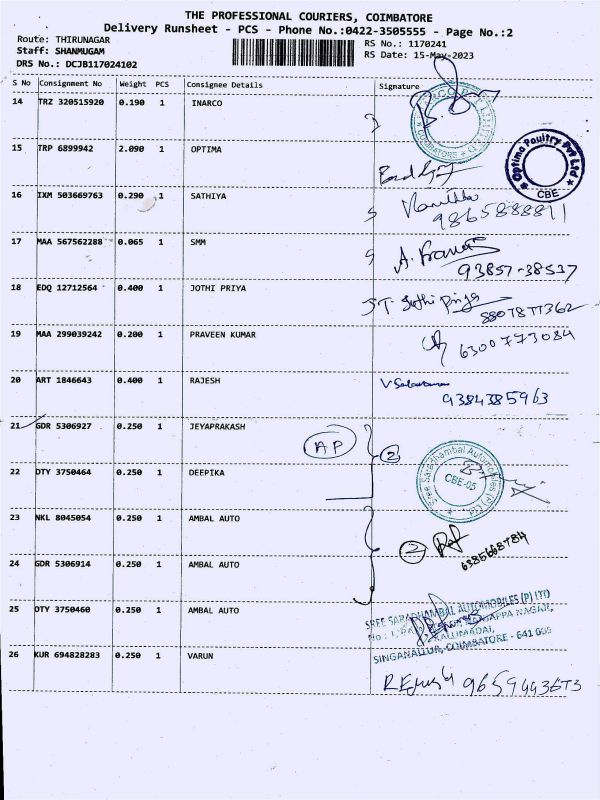 THE PROFESSIONAL COURIERS, COIMBATORE
Delivery Runsheet - PCS - Phone No.:0422-3505555 - Page No.:2
Route: THIRUNAGAR
RS No.: 1170241
Staff: SHANMUGAM
RS Date: 15-May-2023
DRS No.: DCJB117024102
S No Consignment No Weight PCS Consignee Details Signature
14 TRZ 320515920 0.190 1 INARCO
COIMBATORE
15 TRP 6899942 2.090 1 OPTIMA
Optima Poultry Pvt Ltd
CBE
16 IXM 503669763 0.290 1 SATHIYA
9865888811
17 MAA 567562288 0.065 1 SMM
A. Francis
93857-38537
18 EDQ 12712564 0.400 1 JOTHI PRIYA
T. Jothi Priya
8807877362
19 MAA 299039242 0.200 1 PRAVEEN KUMAR
6300773084
20 ART 1846643 0.400 1 RAJESH
9384385963
21 GDR 5306927 0.250 1 JEYAPRAKASH
AP
2
Sree Saradhambal Automobiles (P) Ltd
CBE-05
22 DTY 3750464 0.250 1 DEEPIKA
23 NKL 8045054 0.250 1 AMBAL AUTO
2
6385668784
24 GDR 5306914 0.250 1 AMBAL AUTO
25 DTY 3750460 0.250 1 AMBAL AUTO
SREE SARADHAMBAL AUTOMOBILES (P) LTD
NAGAR,
KALLIMADAI,
SINGANALLUR, COIMBATORE - 641 005
26 KUR 694828283 0.250 1 VARUN
9659443673